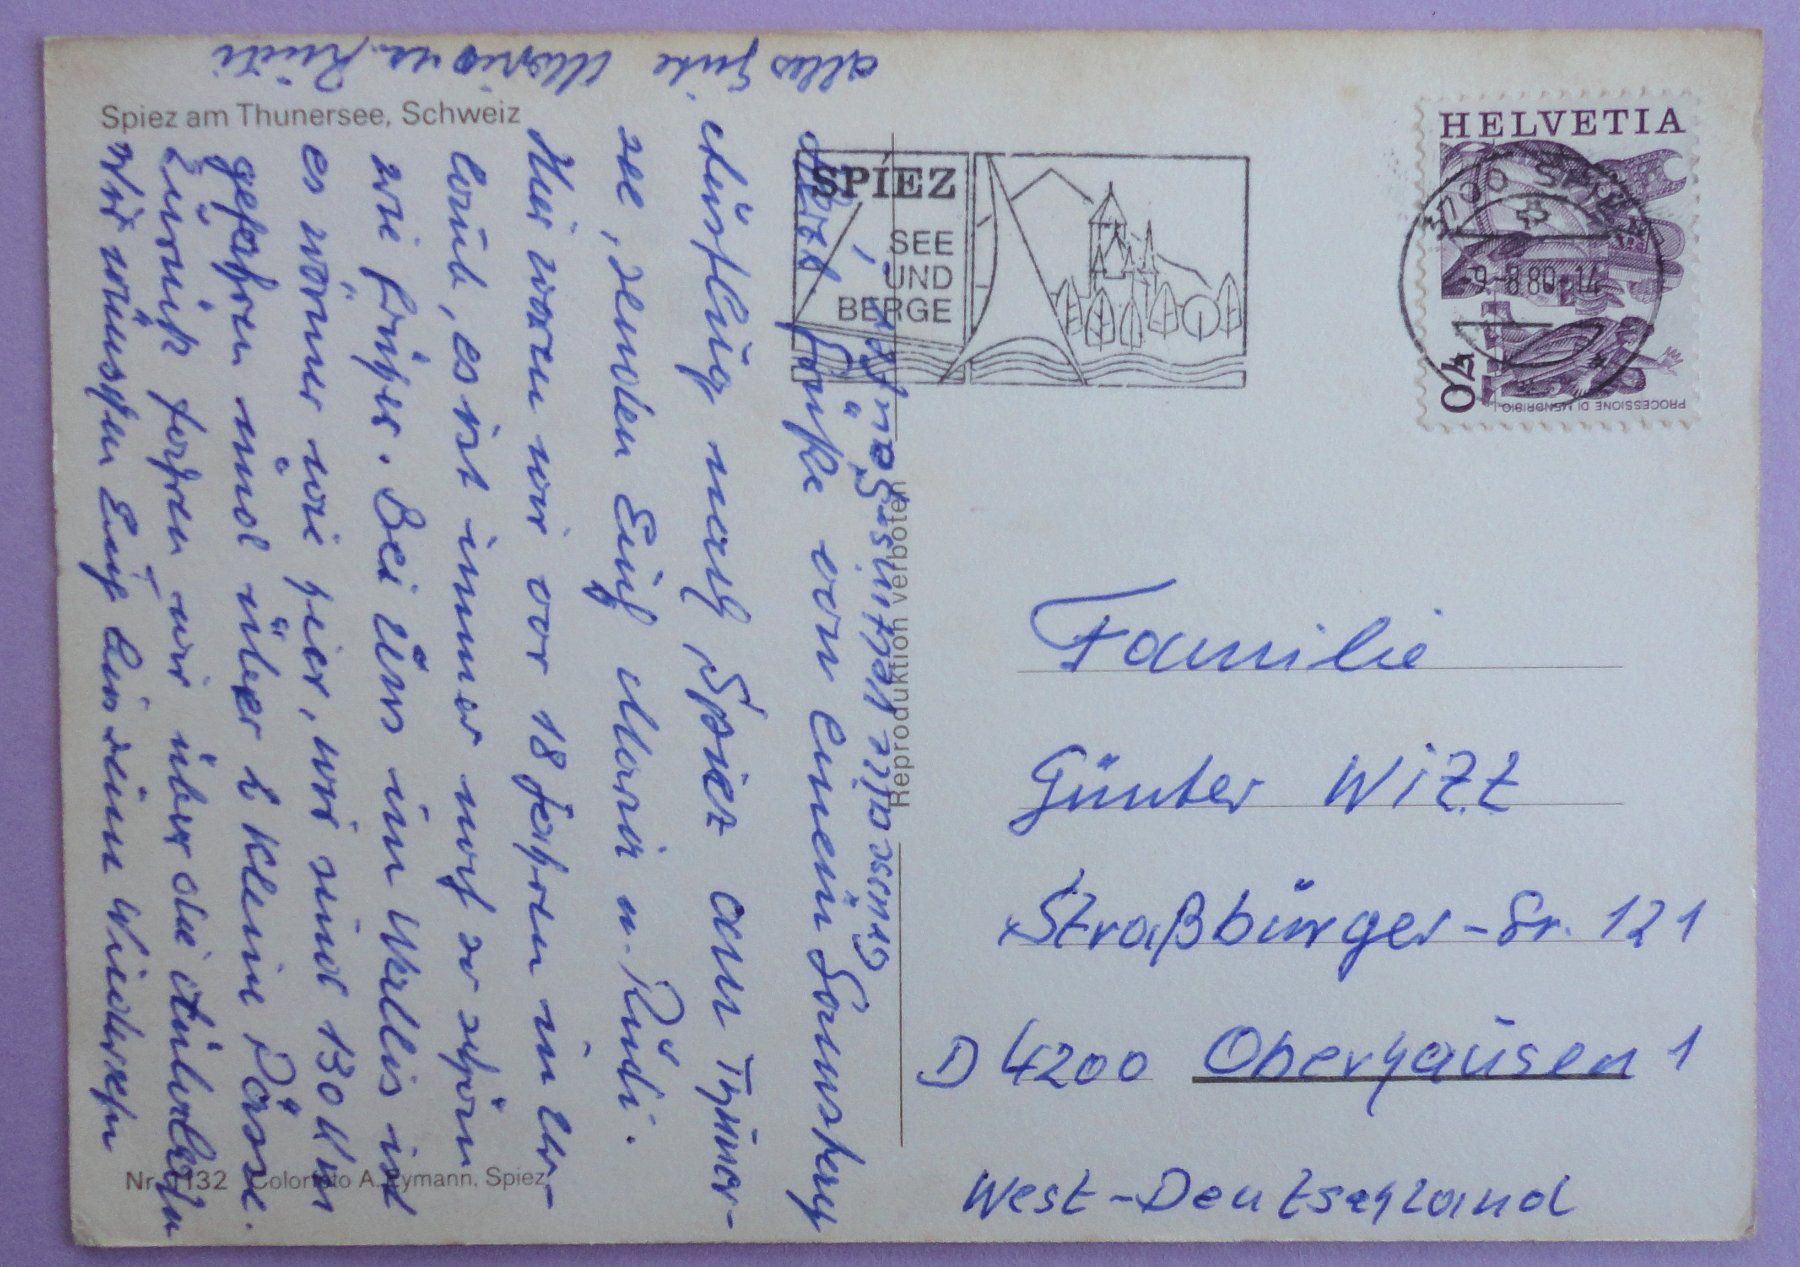 Spiez am Thunersee, Schweiz
Herzl. Grüße von einem Samstag
Ausflug nach Spiez am Thuner-
see, senden Euch Maria u. Rüdi.
Hier waren wir vor 18 Jahren in Ur-
laub, es ist immer noch so schön
wie früher. Bei Uns im Wallis ist
es wärmer wie hier, wir sind 130 Km
gefahren und über 2 kleine Pässe.
Zurück fahren wir über die
Wir wünschen Euch Wiedersehn
Alles Gute Maria u. Rüdi
Reproduktion verboten
SPIEZ
SEE
UND
BERGE
HELVETIA
3700 SPIEZ
-9.-8.80-14
40
PROCESSIONE DI MENDRISIO
Familie
Günter Witt
Straßbürger-Str. 121
D 4200 Oberhausen 1
West-Deutschland
Spiez